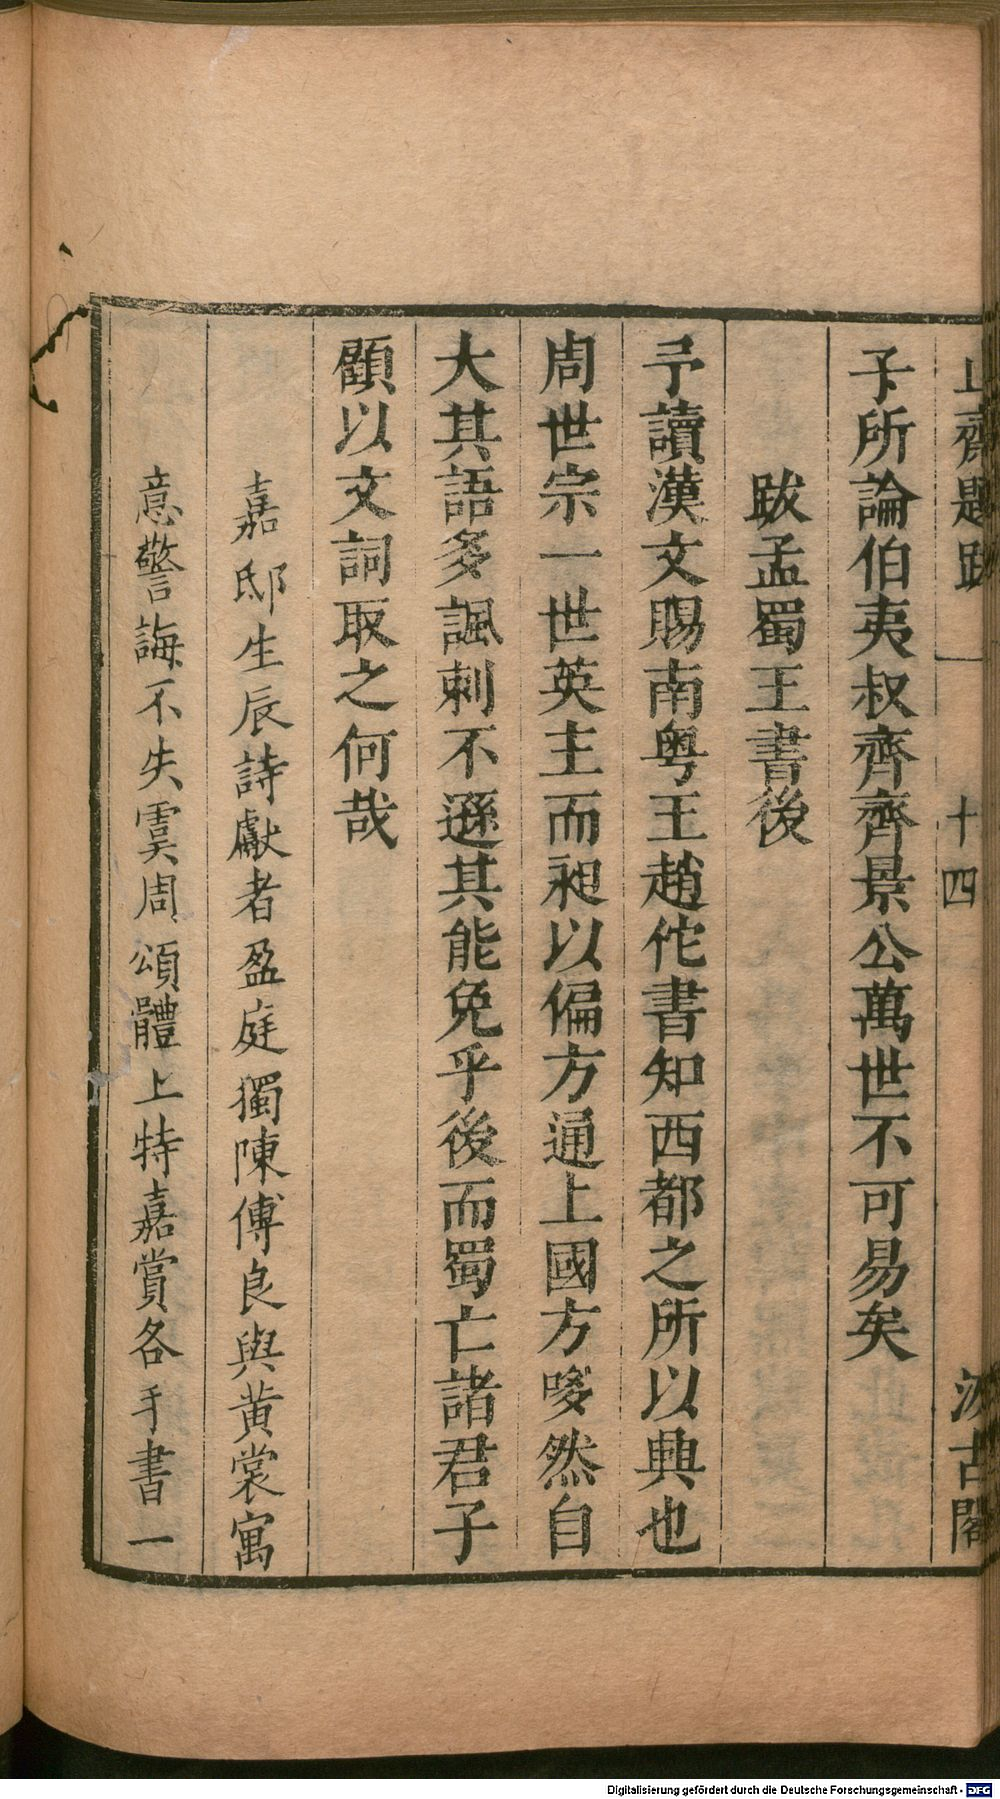 止齋題跋 十四 汲古閣
子所論伯夷叔齊齊景公萬世不可易矣
跋孟蜀王書後
予讀漢文賜南粤王趙佗書知西都之所以興也
周世宗一世英主而昶以偏方通上國方唛然自
大其語多諷刺不遜其能免乎後而蜀亡諸君子
顧以文詞取之何哉
嘉邸生辰詩獻者盈庭獨陳傅良與黄裳寓
意警誨不失虞周頌體上特嘉賞各手書一
Digitalisierung gefördert durch die Deutsche Forschungsgemeinschaft - DFG